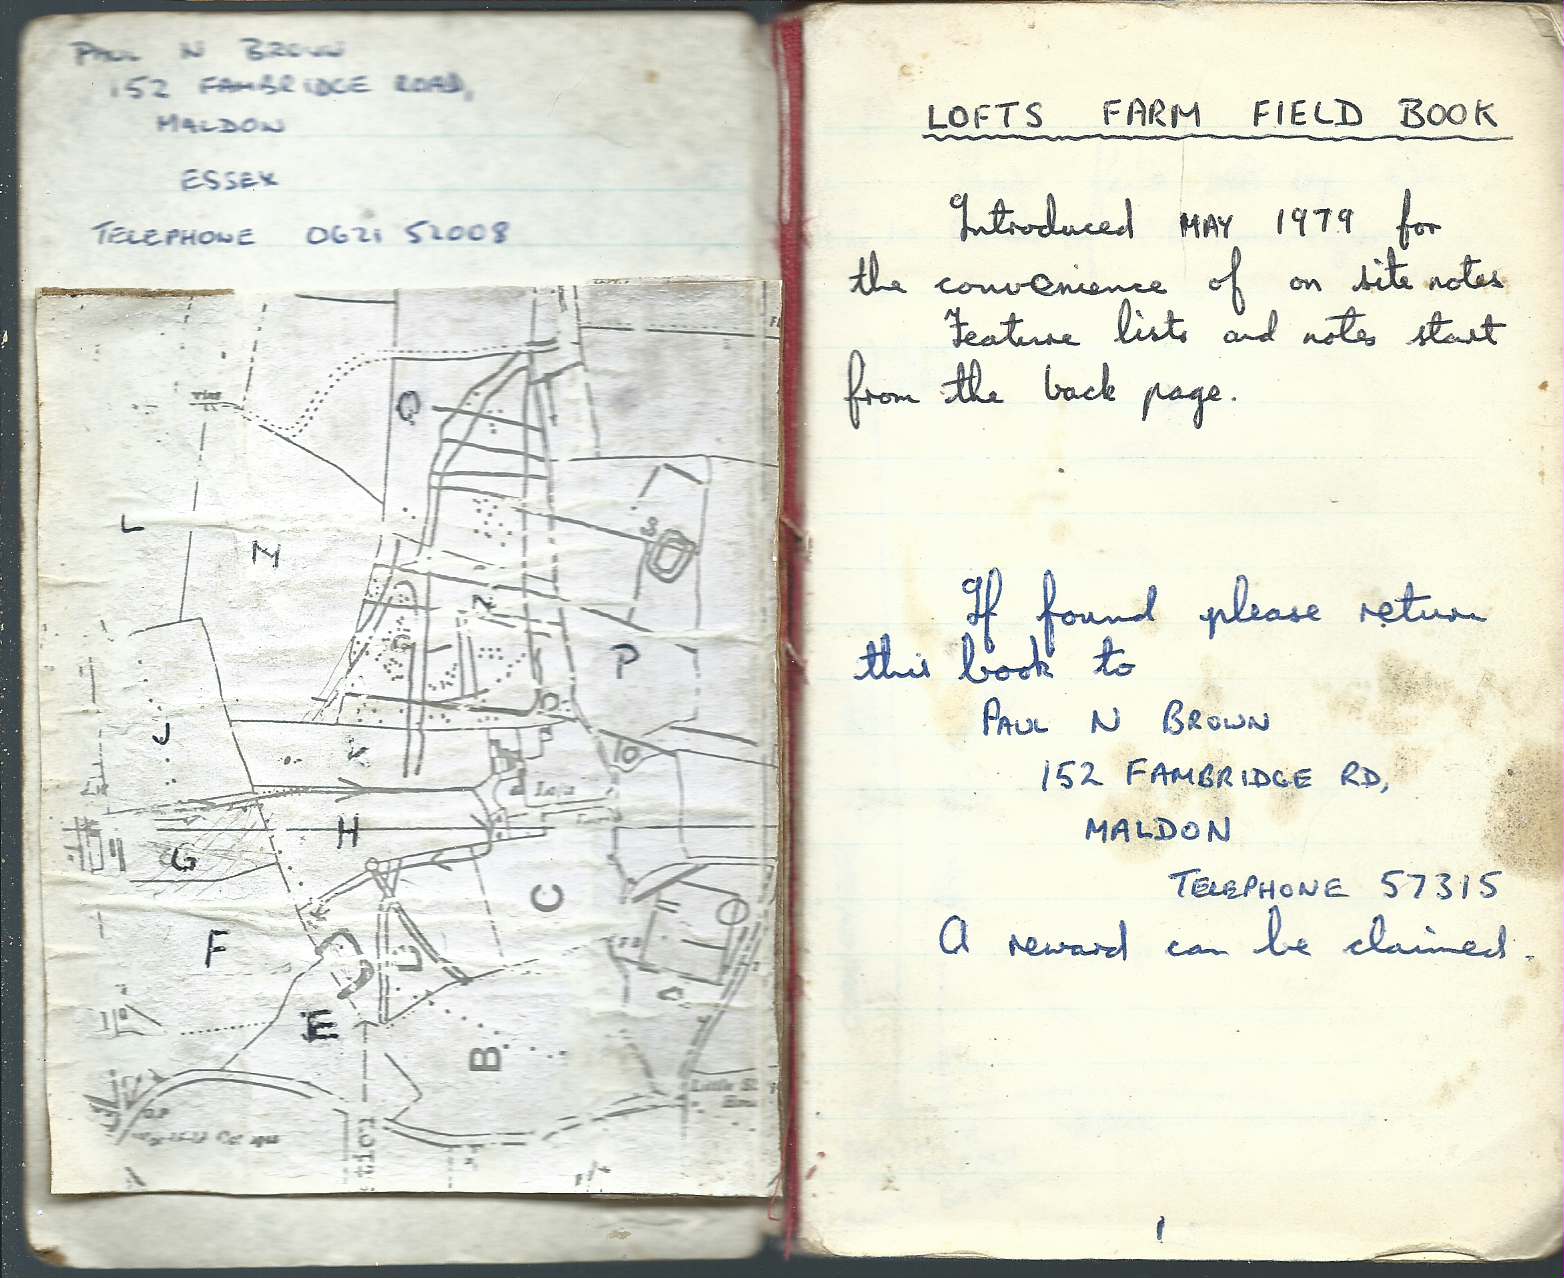 PAUL N BROWN
152 FAMBRIDGE ROAD,
MALDON
ESSEX
TELEPHONE 0621 52008
Q
L
M
S
N
P
J
K
H
G
Lofts
Farm
C
F
D
E
B
Little
LOFTS FARM FIELD BOOK
Introduced MAY 1979 for
the convenience of on site notes
Feature lists and notes start
from the back page.
If found please return
this book to
PAUL N BROWN
152 FAMBRIDGE RD,
MALDON
TELEPHONE 57315
A reward can be claimed.
1